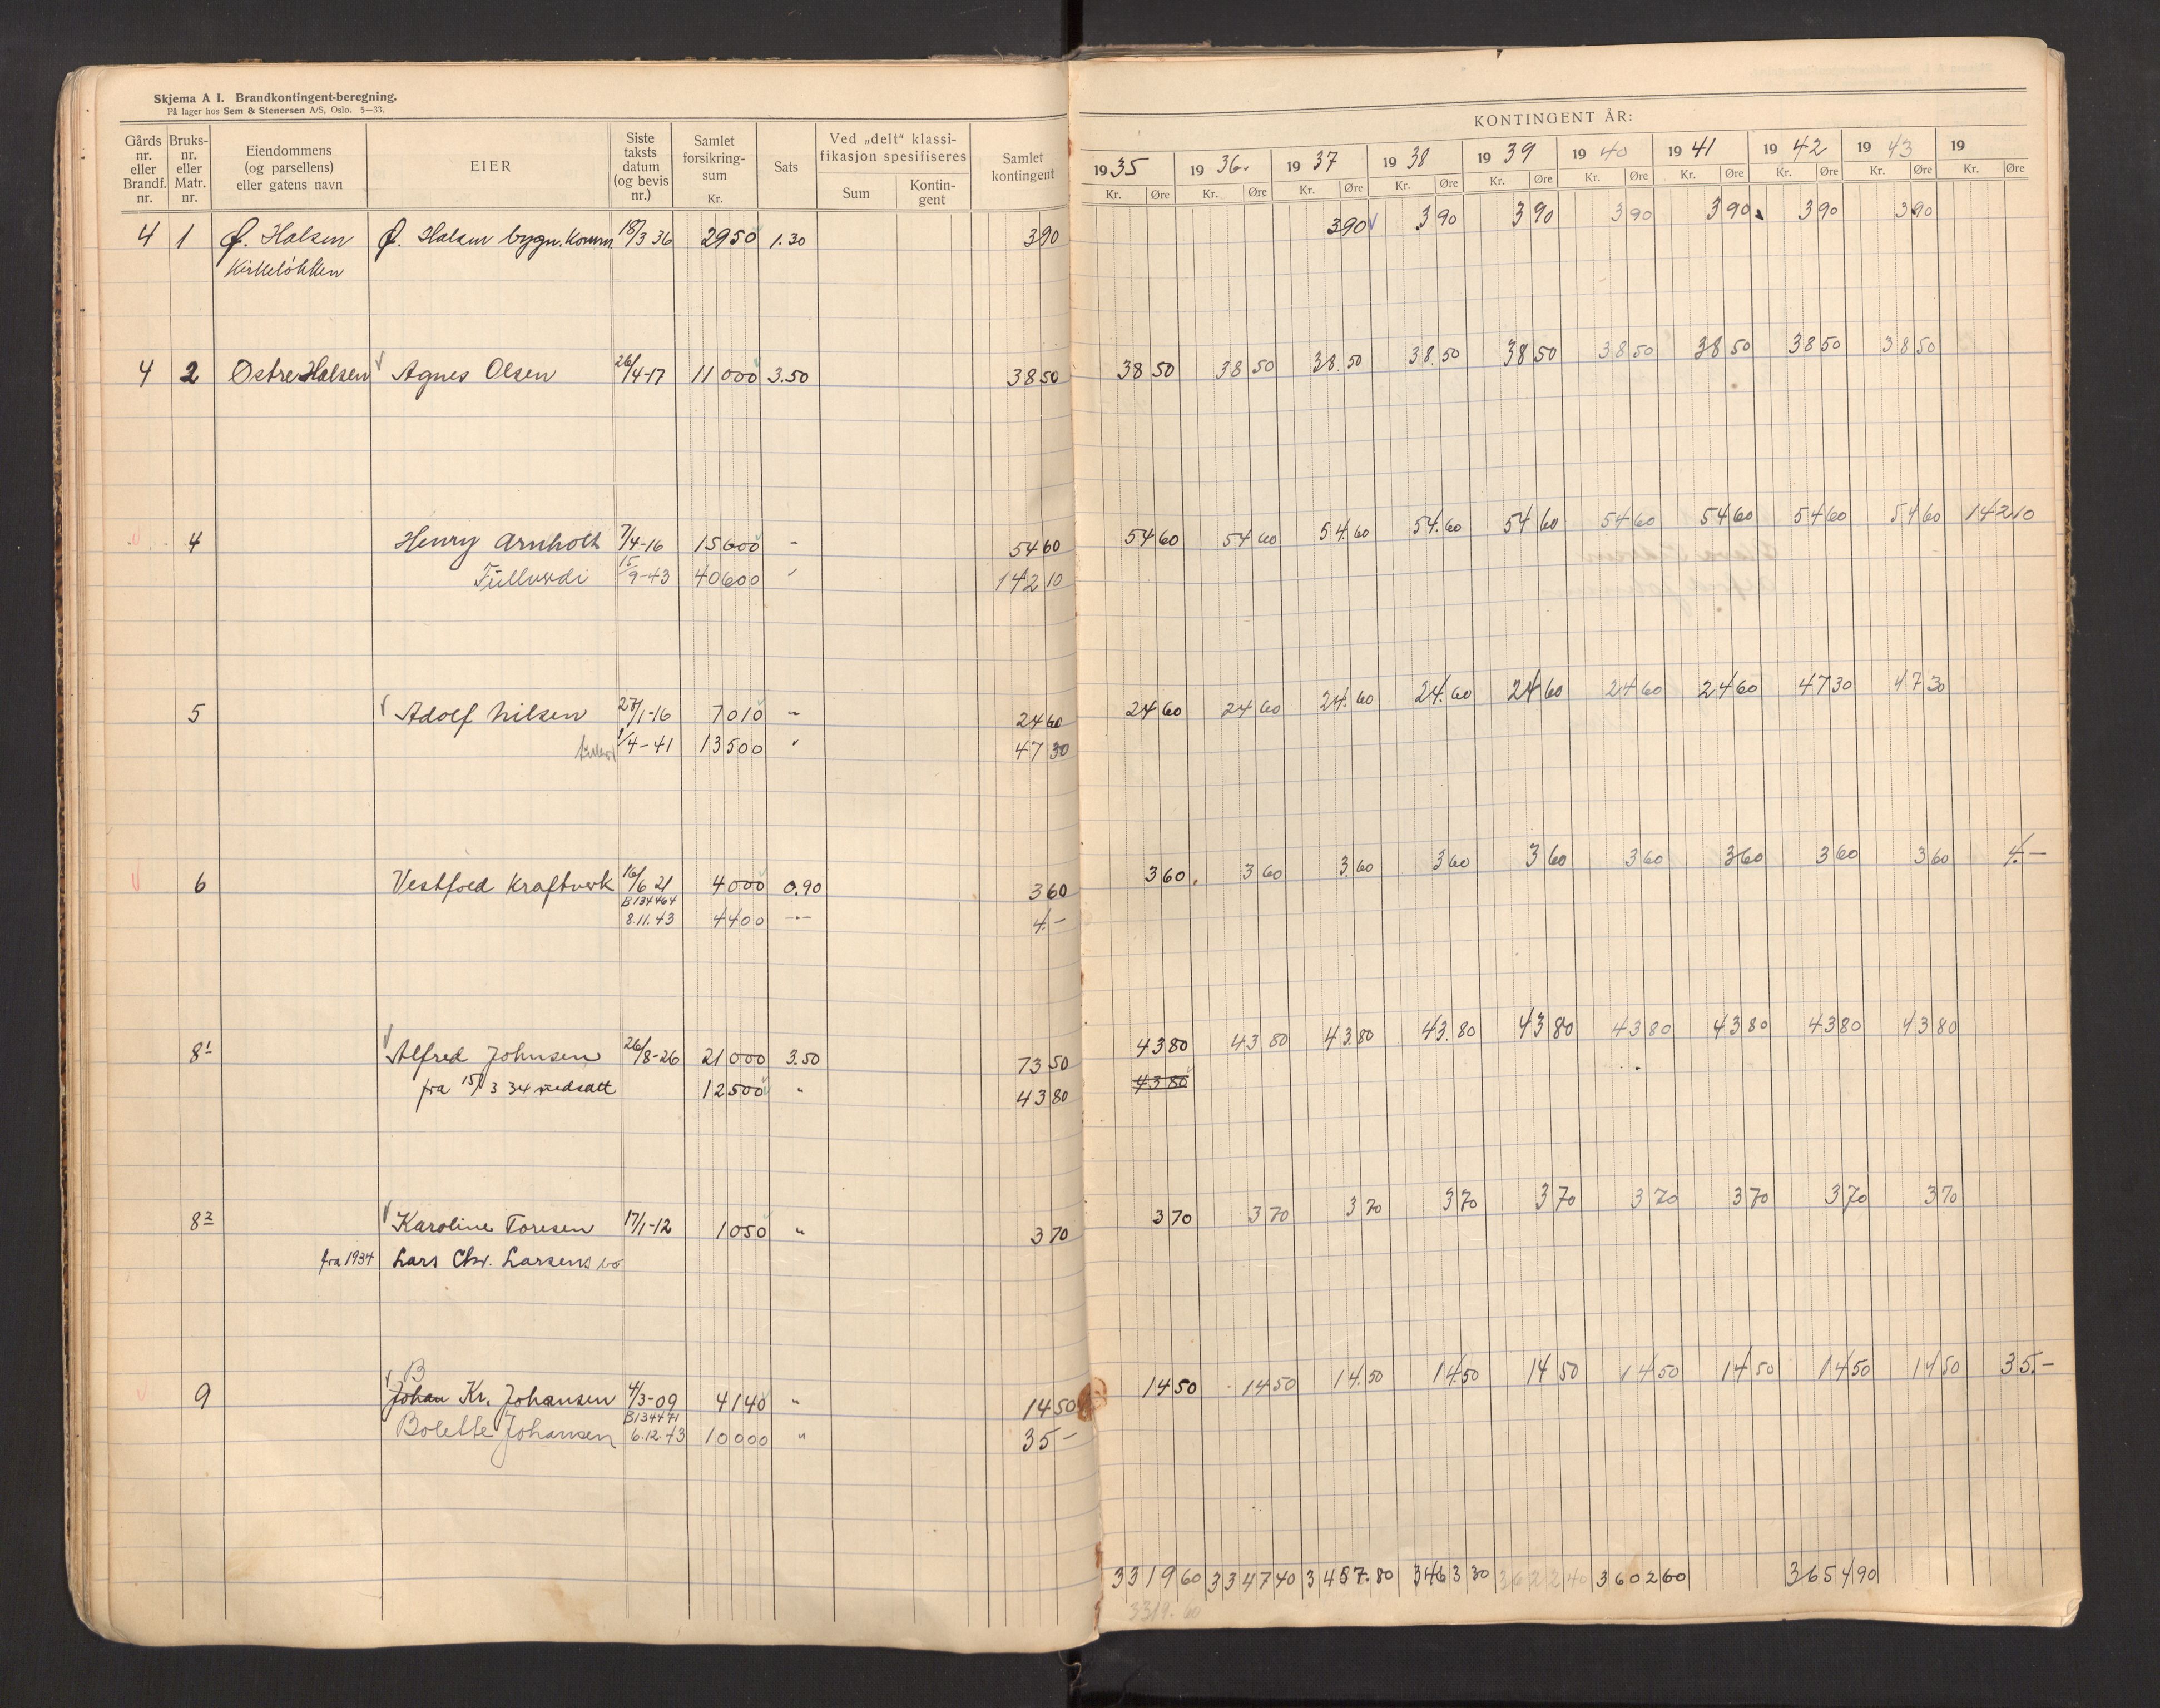 Skjema A I. Brandkontingent-beregning.
På lager hos Sem & Stenersen A/S, Oslo. 5—33.
Gårds nr. eller Brandf. nr. Bruks- nr. eller Matr. nr. Eiendommens (og parsellens) eller gatens navn EIER Siste taksts datum (og bevis nr.) Samlet forsikring- sum Kr. Sats Ved „delt" klassi- fikasjon spesifiseres Sum Kontin- gent Samlet kontingent
4 1 Ø. Halsen Ø. Halsen bygn. Komm 18/3 36 2950 1.30 3 90
Kirkeløkken
4 2 Østre Halsen Agnes Olsen 26/4-17 11 000 3.50 38 50
4 Henry Arnholt 7/4-16 15600 - 54 60
Füllverdi 15/9-43 40600 " 142 10
5 Adolf Nilsen 27/1-16 7010 " 24 60
1/4-41 13500 " 47 30
6 Vestfold Kraftverk 16/6 21 4000 0.90 3 60
B134464
8.11.43 4400 -"- 4.-
8¹ Alfred Johnsen 26/8-26 21000 3.50 73 50
fra 15/3 34 nedsatt 12500 " 43 80
8² Karoline Toresen 17/1-12 1050 " 3 70
fra 1934 Lars Chr. Larsens bo
B
9 Johan Kr. Johansen 4/3-09 4140 " 14 50
B134471
Bolette Johansen 6.12.43 10000 " 35 -
KONTINGENT ÅR:
1935 1936. 1937 1938 1939 1940 1941 1942 1943 19
Kr. Øre Kr. Øre Kr. Øre Kr. Øre Kr. Øre Kr. Øre Kr. Øre Kr. Øre Kr. Øre Kr. Øre
3 90 3 90 3 90 3 90 3 90 3 90 3 90
38 50 38 50 38.50 38.50 38 50 38 50 38 50 38 50 38 50
54 60 54 60 54.60 54.60 54 60 54 60 54 60 54 60 54 60 142 10
24 60 24 60 24.60 24.60 24 60 24 60 24 60 47 30 47 30
3 60 3 60 3.60 3 60 3 60 3 60 3 60 3 60 3 60 4.-
43 80 43 80 43.80 43.80 43 80 43 80 43 80 43 80 43 80
43 80
3 70 3 70 3 70 3 70 3 70 3 70 3 70 3 70 3 70
14 50 14 50 14.50 14.50 14 50 14 50 14 50 14 50 14 50 35.-
3319 60 3347 40 3457.80 3463 30 3622 40 3602 60 3654 90
3319.60